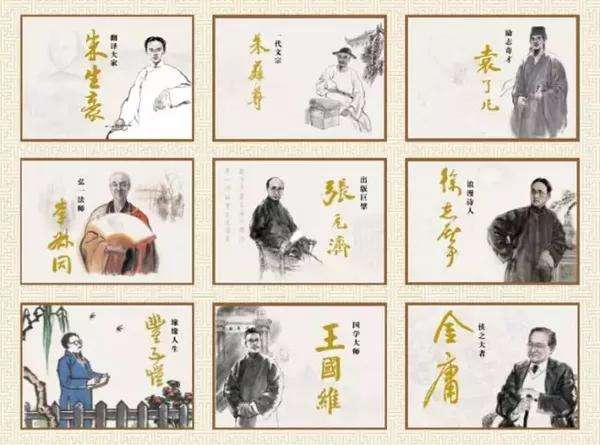 翻译大家
朱生豪
一代文宗
朱彝尊
励志奇才
袁了凡
弘一法师
李叔同
出版巨擘
張元濟
浪漫诗人
徐志摩
缘缘人生
豐子愷
国学大师
王國維
侠之大者
金庸